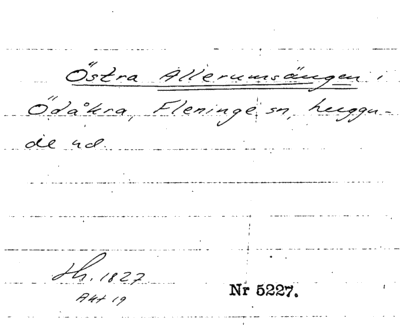 Östra Allerumsängen,
Ödåkra, Fleninge sn, Luggu-
de hd.
Lh. 1827
Akt 19
Nr 5227.